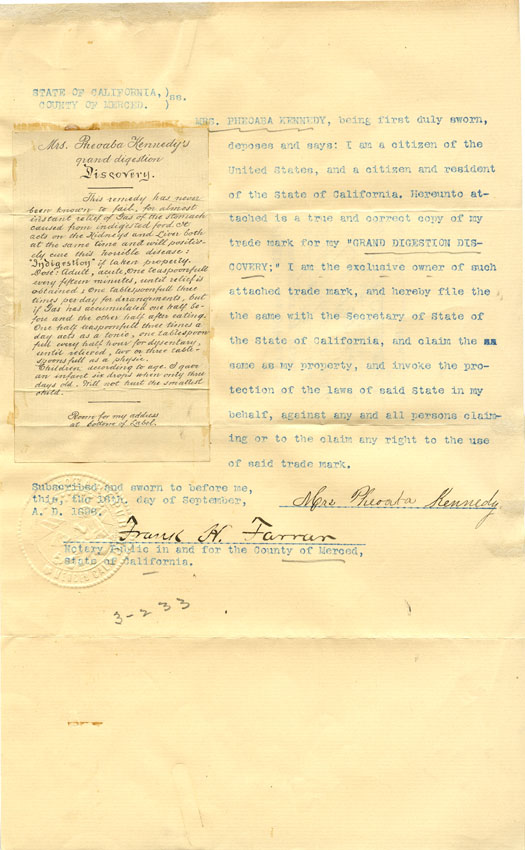 STATE OF CALIFORNIA, )
COUNTY OF MERCED. ) ss.
MRS. PHEOABA KENNEDY, being first duly sworn,
deposes and says: I am a citizen of the
United States, and a citizen and resident
of the State of California. Hereunto at-
tached is a true and correct copy of my
trade mark for my "GRAND DIGESTION DIS-
COVERY;" I am the exclusive owner of such
attached trade mark, and hereby file the
the same with the Secretary of State of
the State of California, and claim the
same as my property, and invoke the pro-
tection of the laws of said State in my
behalf, against any and all persons claim-
ing or to the claim any right to the use
of said trade mark.
Mrs. Pheoaba Kennedy's
grand digestion
Discovery.
This remedy has never
been known to fail, for almost
instant relief of Gas of the stomach
caused from indigested food. It
acts on the Kidneys and Liver both
at the same time and will positive-
ly cure this horrible disease:
"Indigestion" if taken properly.
Dose: Adult, acute, One teaspoonfull
every fifteen minutes, until relief is
obtained: One tablespoonfull three
times per day for derangements, but
if Gas has accumulated one half be-
fore and the other half after eating.
One half teaspoonfull three times a
day acts as a tonic, one tablespoon
full every half hour for dysentary,
until relieved, two or three table-
spoonsfull as a physic.
Children according to age. I gave
an infant six drops when only three
days old. Will not hurt the smallest
child.
Room for my address
at bottom of Label.
Subscribed and sworn to before me,
this, the 16th. day of September,
A. D. 1898.
Mrs Pheoaba Kennedy
Frank H. Farrar
Notary Public in and for the County of Merced,
State of California.
3-233